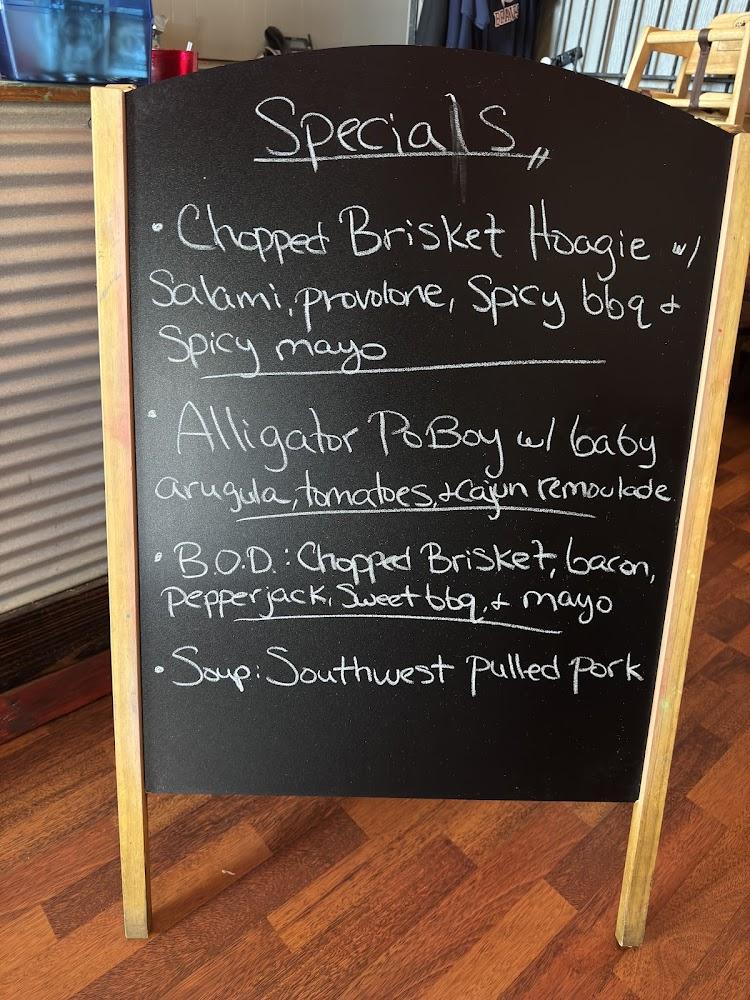 Specials
• Chopped Brisket Hoagie w/
Salami, provolone, Spicy bbq &
Spicy mayo
• Alligator PoBoy w/ baby
arugula, tomatoes, & cajun remoulade
• B.O.D.: Chopped Brisket, bacon,
pepperjack, Sweet bbq, & mayo
• Soup: Southwest pulled pork